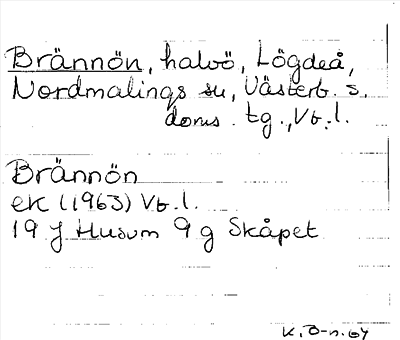 Brännön, halvö, Lögdeå,
Nordmalings sn, Västerb. s.
doms. tg., Vb. l.
Brännön
ek (1963) Vb. l.
19 J Husum 9 g Skåpet
K. Ö-n. 64